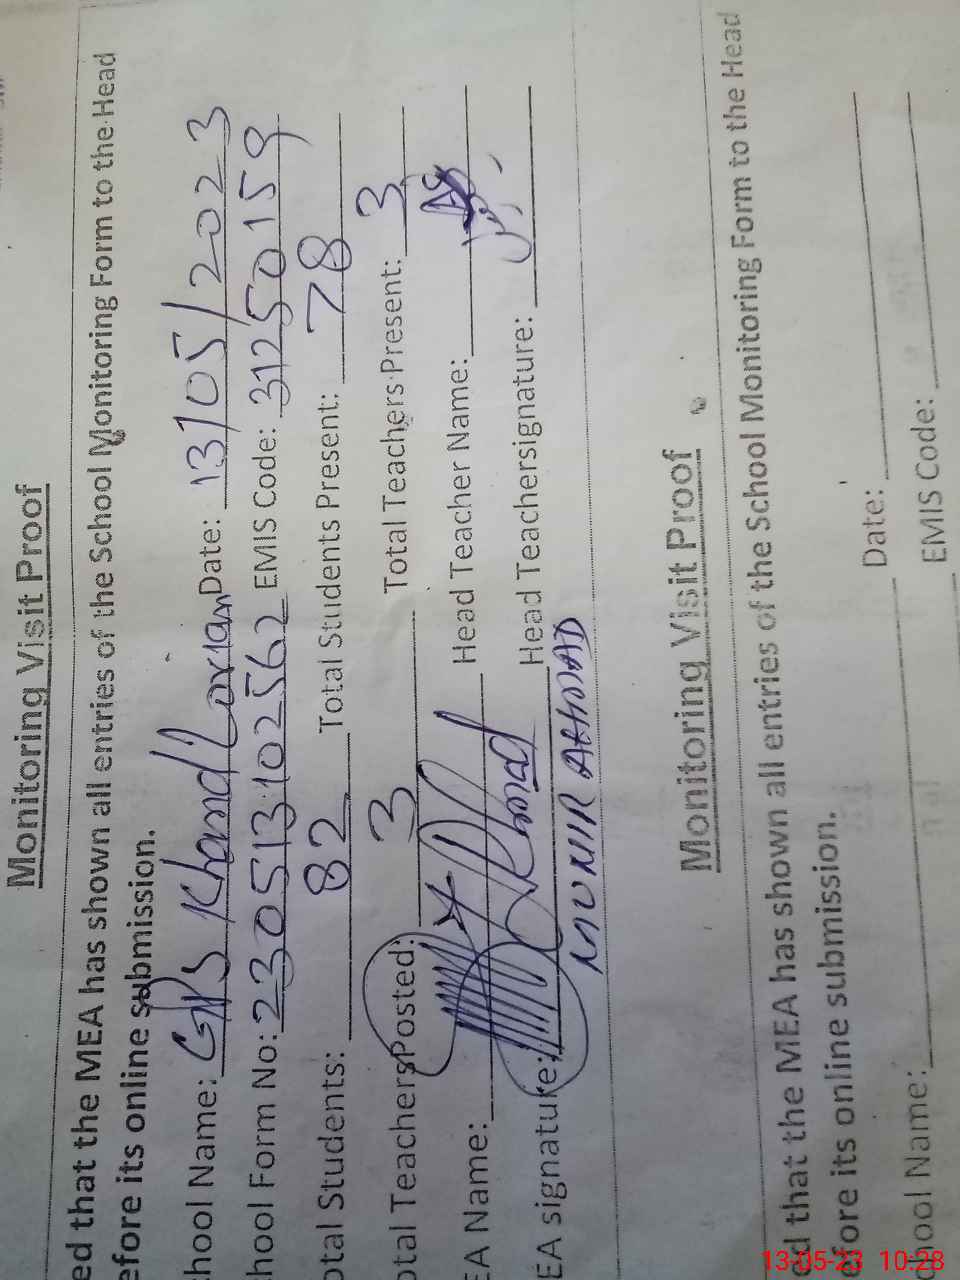 Monitoring Visit Proof
ed that the MEA has shown all entries of the School Monitoring Form to the Head
efore its online submission.
chool Name: GPS Khand Lorian Date: 13/05/2023
hool Form No: 230513102562 EMIS Code: 31250159
otal Students: 82 Total Students Present: 78
otal Teachers Posted: 3 Total Teachers Present: 3
EA Name: Head Teacher Name:
EA signature: Head Teachersignature:
MUNIR AHMAD
Monitoring Visit Proof
ed that the MEA has shown all entries of the School Monitoring Form to the Head
efore its online submission.
chool Name: Date:
EMIS Code:
13-05-23 10:28